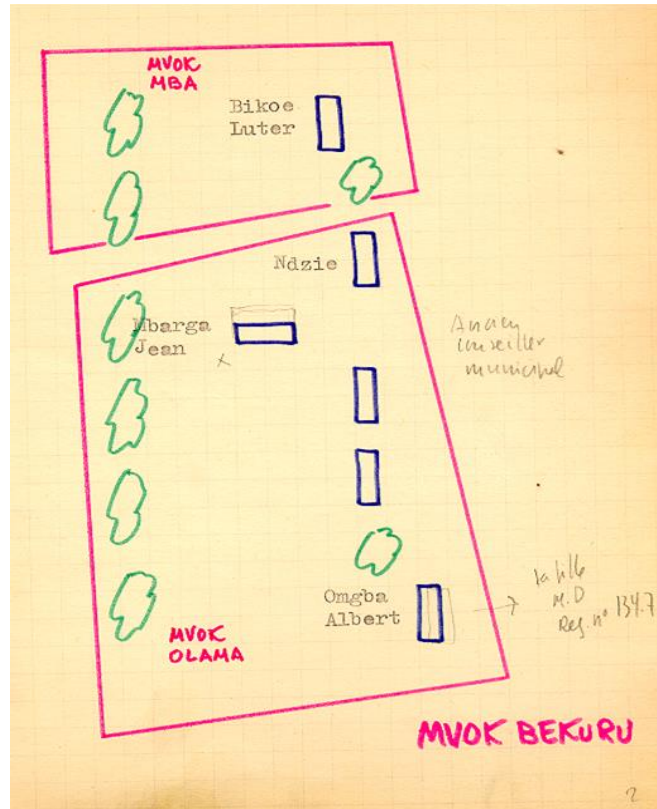 MVOK
MBA
Bikoe
Luter
Ndzie
Mbarga
Jean
Ancien
conseiller
municipal
Omgba
Albert
la fille
M.D
Reg. nº 134.7
MVOK
OLAMA
MVOK BEKURU
2